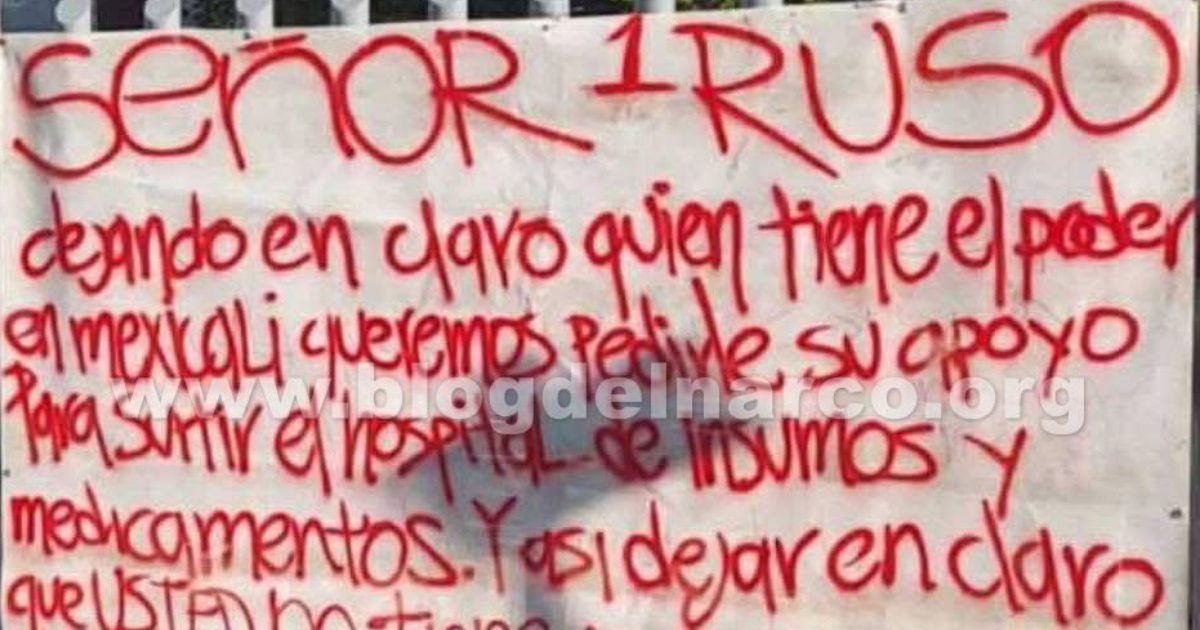 SEÑOR 1 RUSO
dejando en claro quien tiene el poder
en mexicali queremos Pedirle su apoyo
www.blogdelnarco.org
Para surtir el hospital de insumos y
medicamentos. Y asi dejar en claro
que USTED no tiene